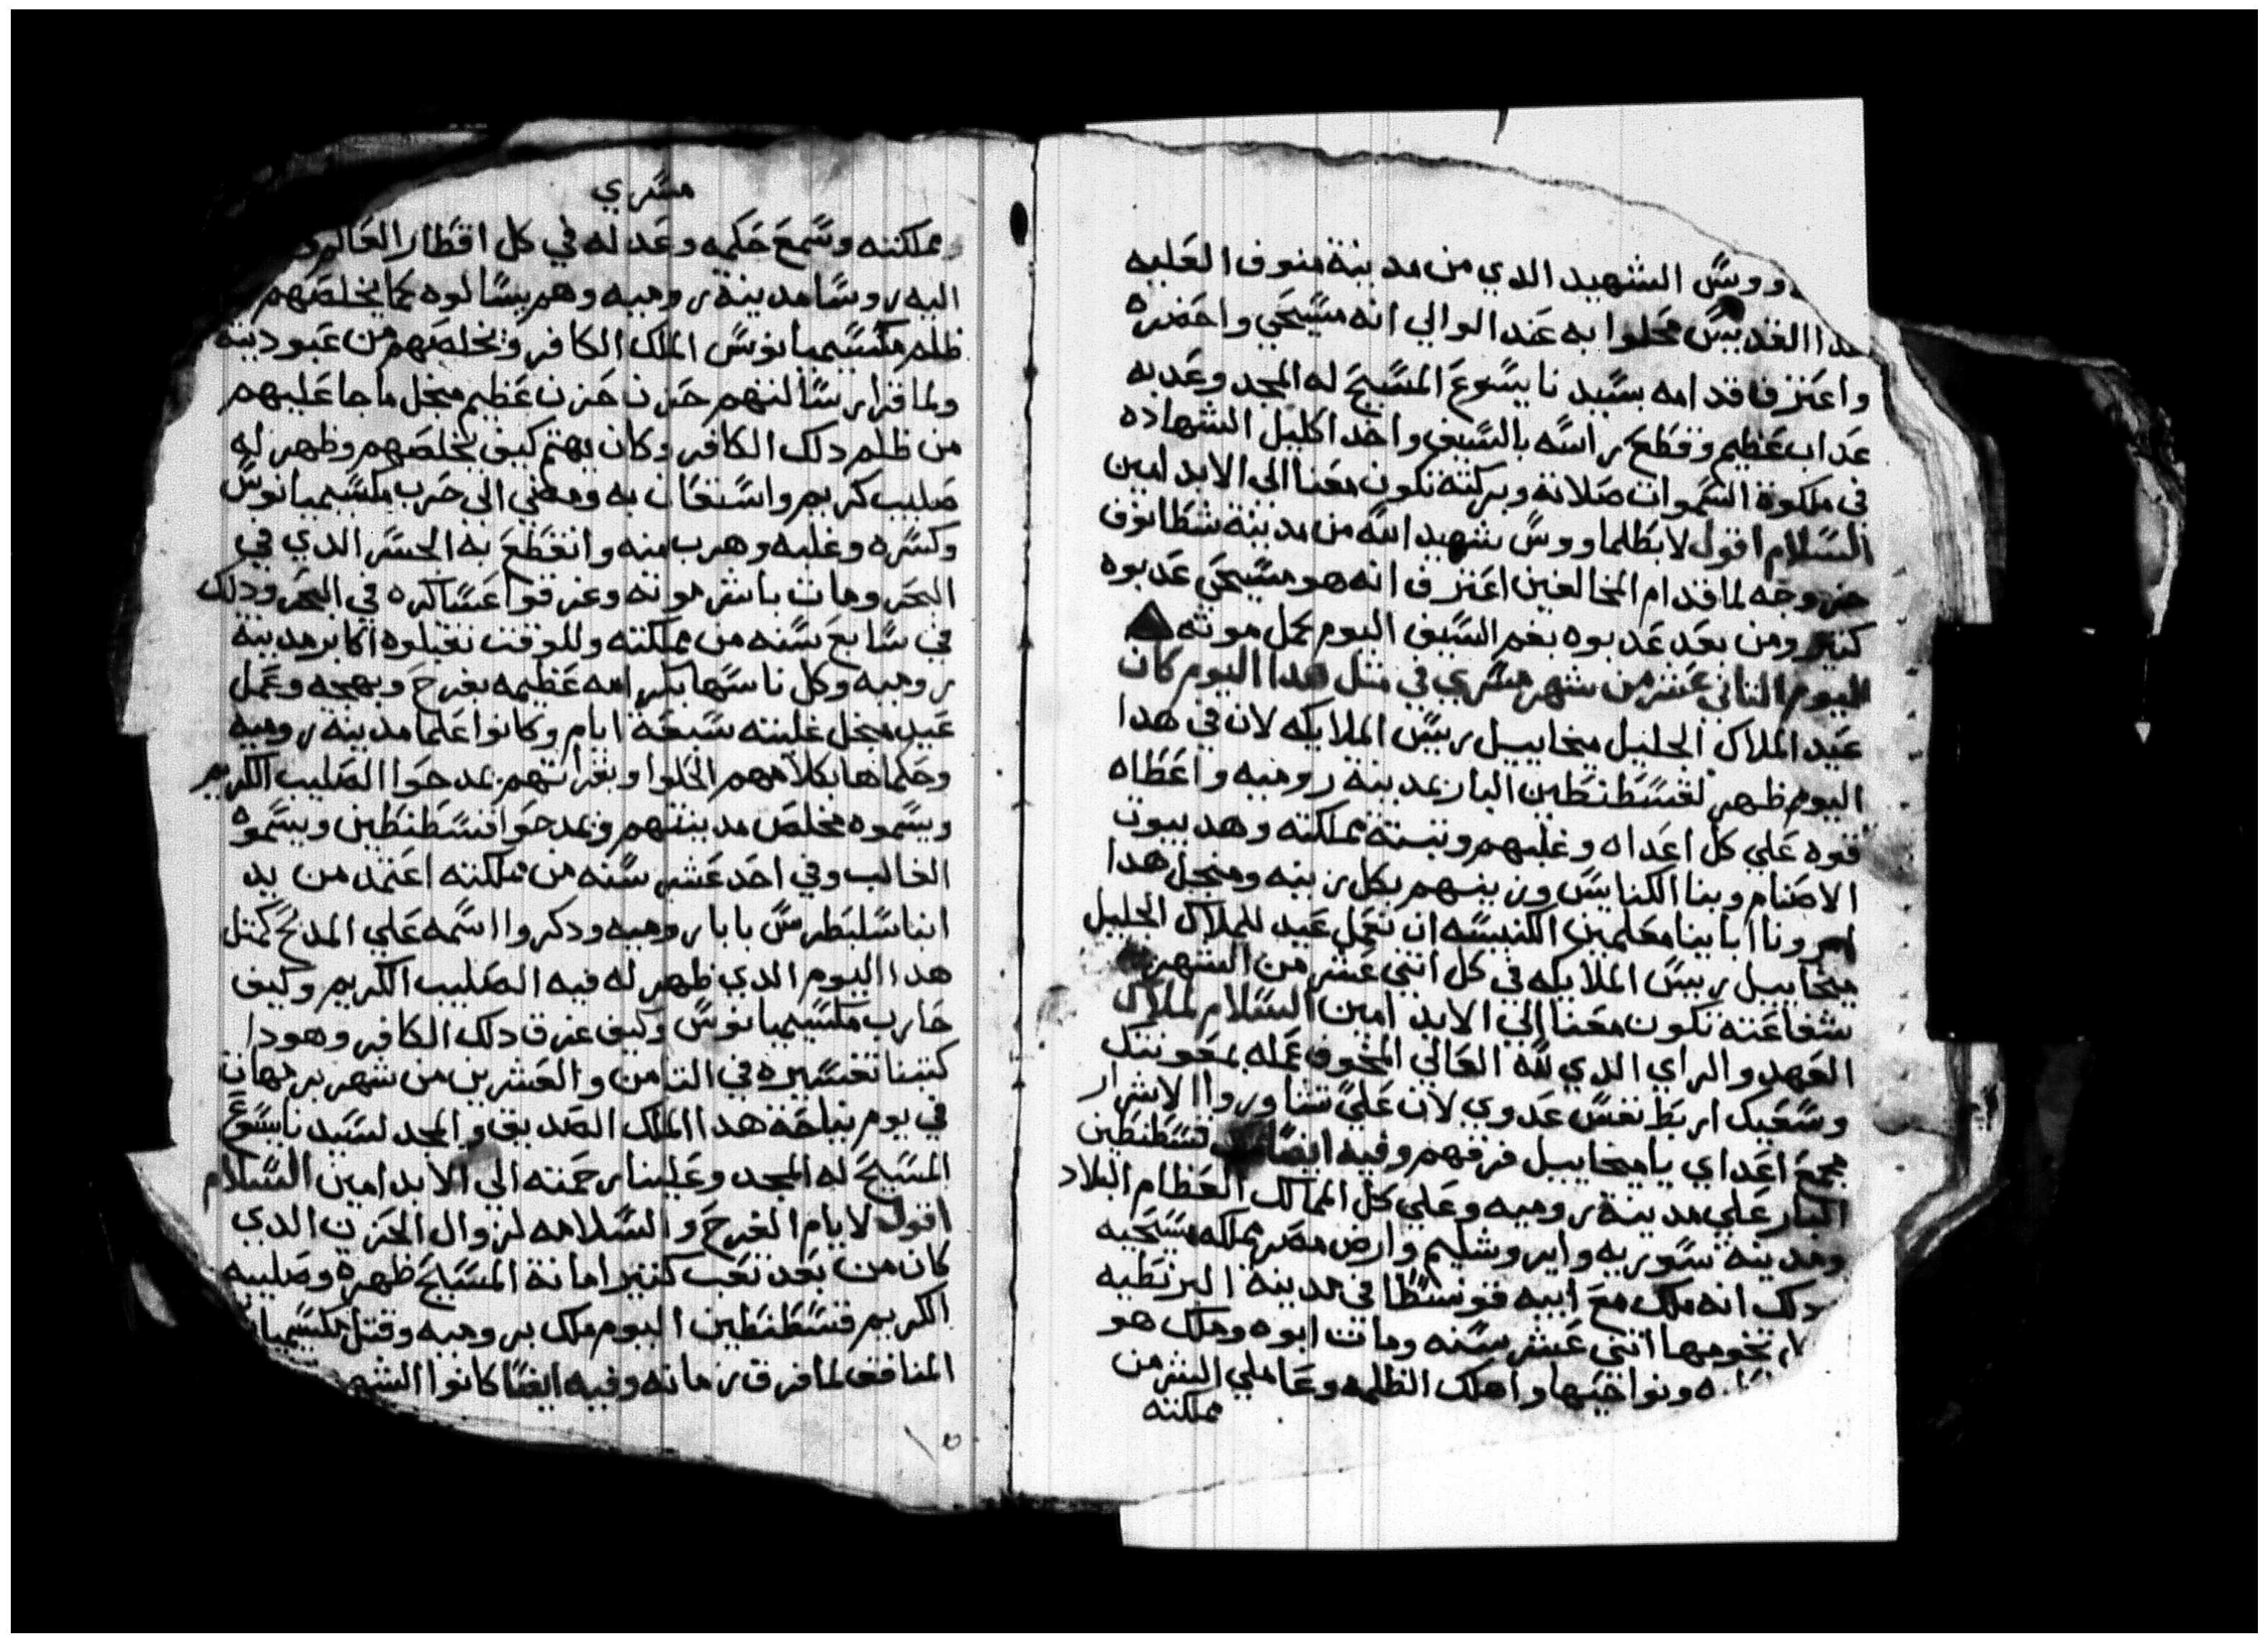 ووس الشهيد الدي من مدينة منوف العليه
هدا القديس محلوا به عند الوالي انه مسيحي واحضره
واعترف قدامه بسيدنا يسوع المسيح له المجد وعدبه
عداب عظيم وقطع راسه بالسيف واخد اكليل الشهاده
في ملكوة السموات صلاته وبركته تكون معنا الى الابد امين
السلام اقول لابطلماووس شهيد الله من مدينة شطانوف
خروجه لما قدام المخالفين اعترف انه هو مسيحي عدبوه
كتير ومن بعد عدبوه بفم السيف اليوم كمل موته
اليوم التاني عشر من شهر مسري في متل هدا اليوم كان
عيد الملاك الجليل ميخاييل رييس الملايكه لان في هدا
اليوم ظهر لقسطنطين البار بمدينة روميه واعطاه
قوه علي كل اعداه وغلبهم وتبتة مملكته وهد بيوت
الاصنام وبنا الكنايس وزينهم بكل زينه ومنجل هدا
امرونا ابايينا معلمين الكنيسه ان نعمل عيد للملاك الجليل
ميخاييل رييس الملايكه في كل اتني عشر من الشهر
شفاعته تكون معنا الي الابد امين السلام لملاك
العهد والراي الدي لله العالي المخوف عمله بمعونتك
وسعيك اربط نفس عدوي لان علي تشاوروا الاشرار
مجمع اعداي يا ميخاييل فرقهم وفيه ايضا ملك قسطنطين
البار علي مدينة روميه وعلي كل الممالك العظام البلاد
ومدينة سوريه وايروشليم وارض مصر مملكه مسيحيه
دلك انه ملك مع ابيه قونسطا في مدينة البرنطيه
تخومها اتني عشر سنه ومات ابوه وملك هو
ونواحيها واهلك الظلمه وعاملي الشر من
مملكته
مسري
مملكته وسمع حكمه وعدله في كل اقطار العالم
اليه روسا مدينة روميه وهم يسالوه كما يخلصهم
ظلم مكسيميانوس الملك الكافر ويخلصهم من عبودينه
ولما قرا رسالتهم حزن حزن عظيم منجل ما جا عليهم
من ظلم دلك الكافر وكان يهتم كيف يخلصهم وظهر له
صليب كريم واستغات به ومضي الى حرب مكسيميانوس
وكسره وغلبه وهرب منه وانقطع به الجسر الدي في
البحر ومات باشر موته وغرقوا عساكره في البحر ودلك
في سابع سنه من مملكته وللوقت تقبلوه اكابر مدينة
روميه وكل ناسها بكرامه عظيمه بفرح وبهجه وعمل
عيد منجل غلبته سبعة ايام وكانوا علما مدينة روميه
وحكماها بكلامهم الحلوا وبقراتهم يمدحوا الصليب الكريم
ويسموه مخلص مدينتهم ويمدحوا قسطنطين ويسموه
الغالب وفي احد عشر سنه من مملكته اعتمد من يد
انبا سلبطرس بابا روميه ودكروا اسمه علي المدبح كمتل
هدا اليوم الدي ظهر له فيه الصليب الكريم وكيف
حارب مكسيميانوس وكيف غرق دلك الكافر وهودا
كتبنا تفسيره في التامن والعشرين من شهر برمهات
في يوم نياحة هدا الملك الصديق والمجد لسيدنا يسوع
المسيح له المجد وعلينا رحمته الي الابد امين السلام
اقول لايام الفرح والسلامه لزوال الحزن الدي
كان من بعد تعب كتير امانة المسيح ظهره وصليبه
الكريم قسطنطين اليوم ملك بروميه وقتل مكسيميا
المنافق لما فرق زمانه وفيه ايضا كانوا